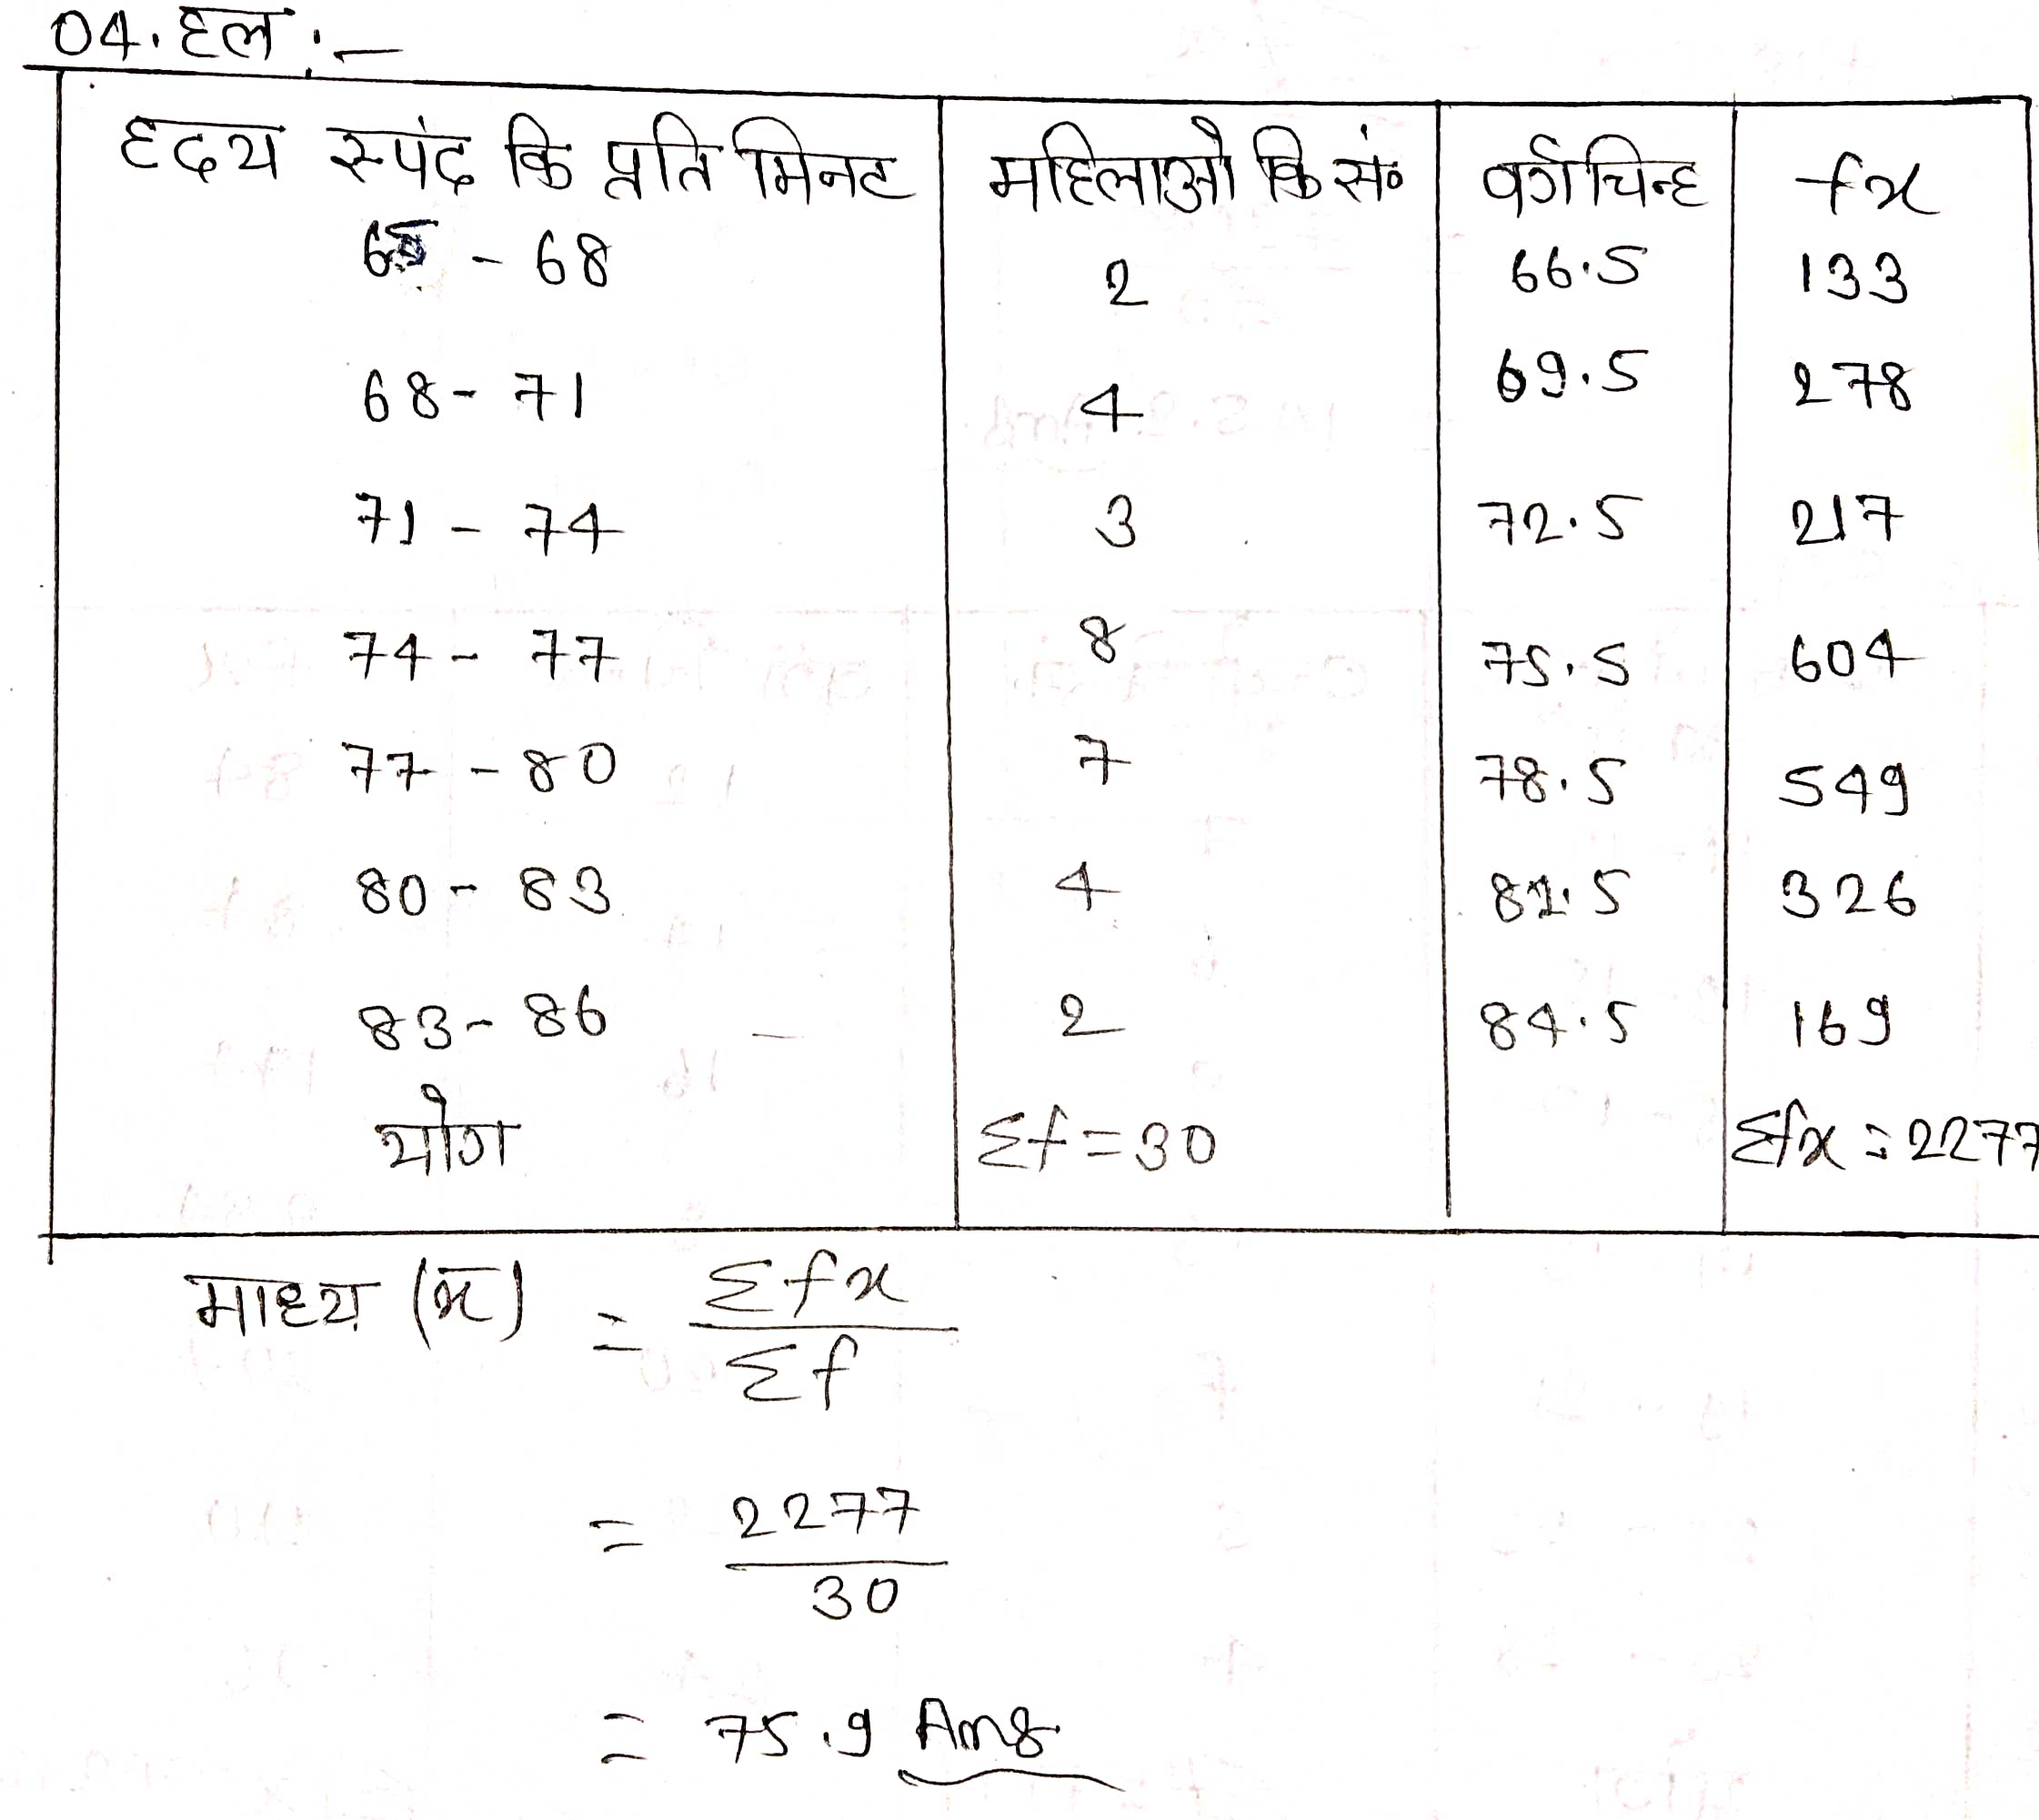 04. हल :-
हृदय स्पंद कि प्रति मिनट महिलाओ कि सं० वर्ग चिन्ह fx
65 - 68 2 66.5 133
68 - 71 4 69.5 278
71 - 74 3 72.5 217
74 - 77 8 75.5 604
77 - 80 7 78.5 549
80 - 83 4 81.5 326
83 - 86 2 84.5 169
योग Σf = 30 Σfx = 2277
माध्य (x̄) = Σfx / Σf
= 2277 / 30
= 75.9 Ans